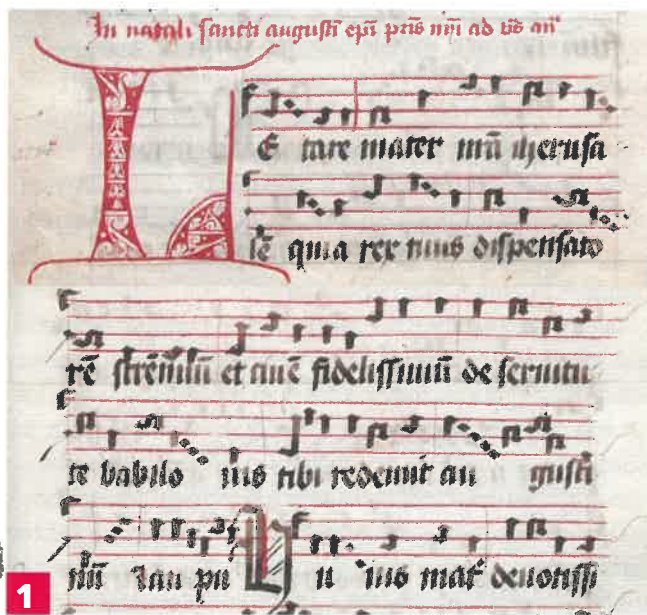 In natali sancti augustī epī pr̄is nr̄i ad vs̄ an̄
LE tare mater nr̄a iherusa
lē quia rex tuus dispensato
rē strēnuū et ciuē fidelissimū de seruitu
te babilo nis tibi redemit au gustī
nū
u ius mat̄ deuotissi
1